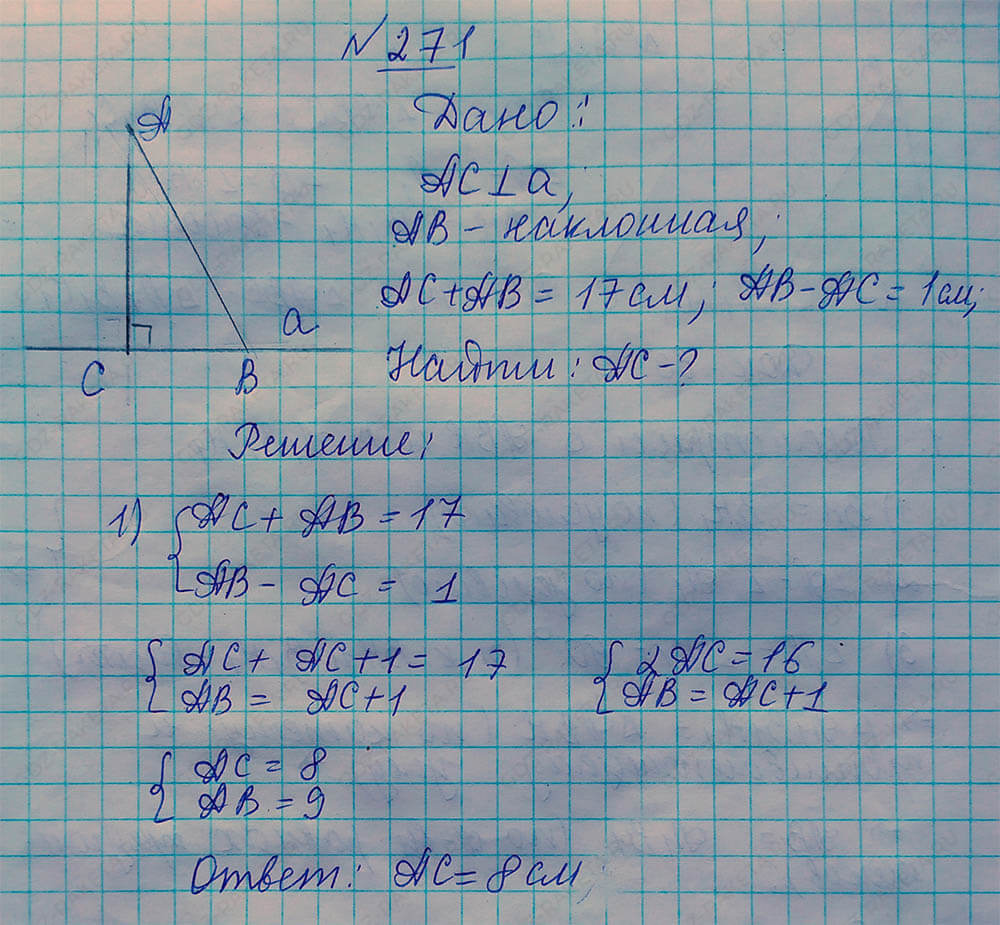 № 271
Дано:
AC⊥a;
AB - наклонная;
AC+AB = 17 см; AB-AC = 1 см;
Найти: AC-?
A
a
C
B
Решение:
1) { AC + AB = 17
AB - AC = 1
{ AC + AC+1 = 17
AB = AC+1
{ 2AC = 16
AB = AC+1
{ AC = 8
AB = 9
Ответ: AC = 8 см;